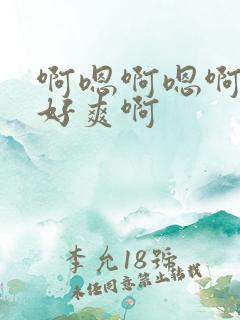 啊嗯啊嗯啊
好爽啊
李允18號
未经同意禁止转载